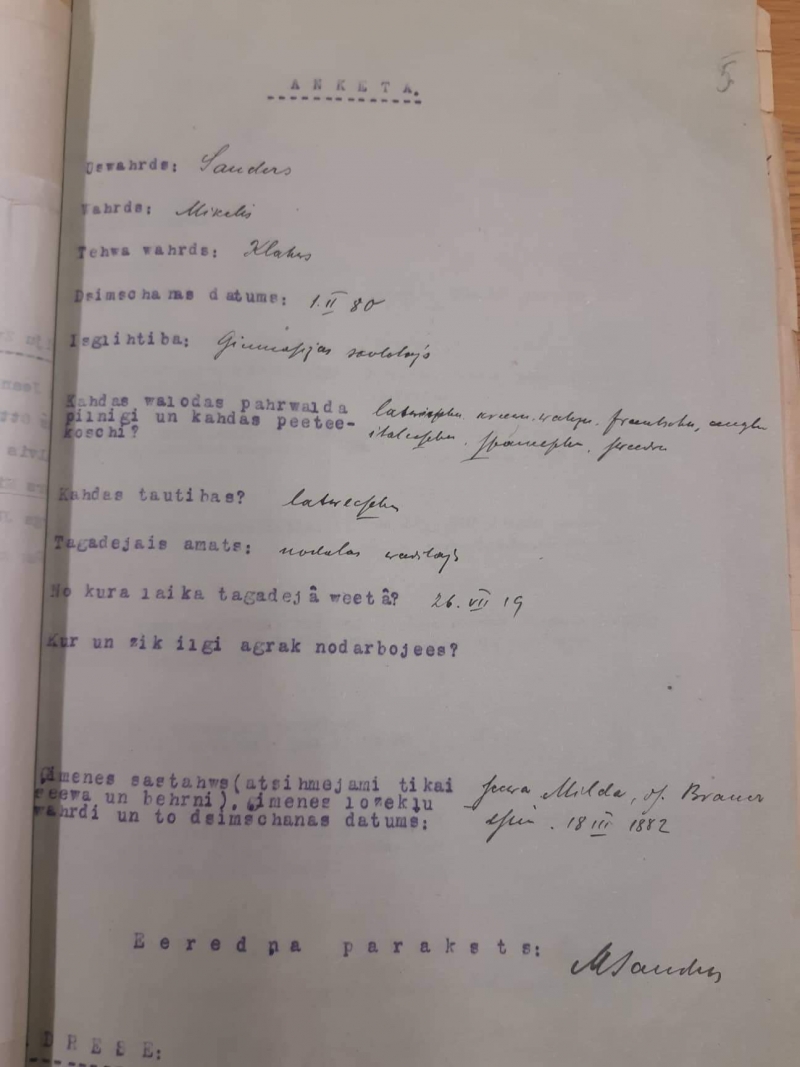 5
ANKETA.
Uswahrds: Sanders
Wahrds: Mikelis
Tehwa wahrds: Klahws
Dsimschanas datums: 1.II 80
Isglihtiba: Gimnasijas
Kahdas walodas pahrwalda
pilnigi un kahdas peetee-
koschi?
latweeschu, kreewu, wahzu, franzuschu, anglu
italeeschu, spaneeschu,
Kahdas tautibas? latweeschu
Tagadejais amats: nodalas waditajs
No kura laika tagadejâ weetâ? 26. VII 19
Kur un zik ilgi agrak nodarbojees?
Gimenes sastahws(atsihmejami tikai
seewa un behrni), gimenes lozekļu
wahrdi un to dsimschanas datums:
seewa Milda,
dsim. 18 III 1882
Eeredņa paraksts: MSanders
ADRESE: